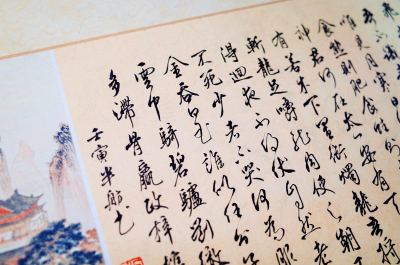 唯見月寒日
食熊則肥食蛙則
神君何在太一安有
有若木下置銜燭龍吾將
斬龍足嚼龍肉使之朝
得回夜不得伏自然老
不死少者不哭何為服
金吞白玉誰似任公子
雲中騎碧驢劉徹
多滯骨嬴政梓棺
壬寅半舫書